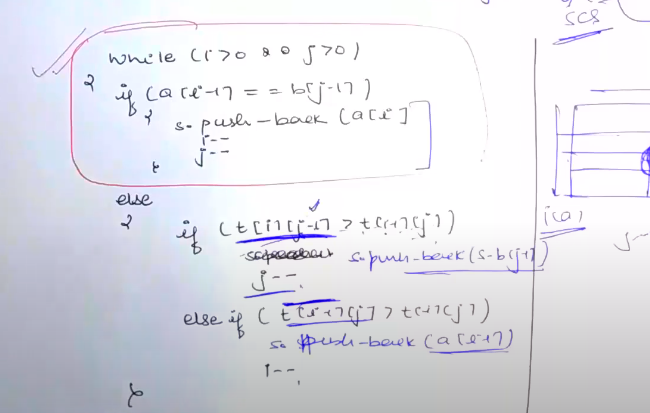 SCS
while (i>0 && j>0)
{
if (a[i-1] == b[j-1])
{
s.push-back (a[i]
i--
j--
}
else
{
if (t[i][j-1] > t[i-1][j])
s.push-back(s-b[j-1])
j--
else if ( t[i-1][j] > t[i-1][j])
s. push-back (a[i-1])
i--
}